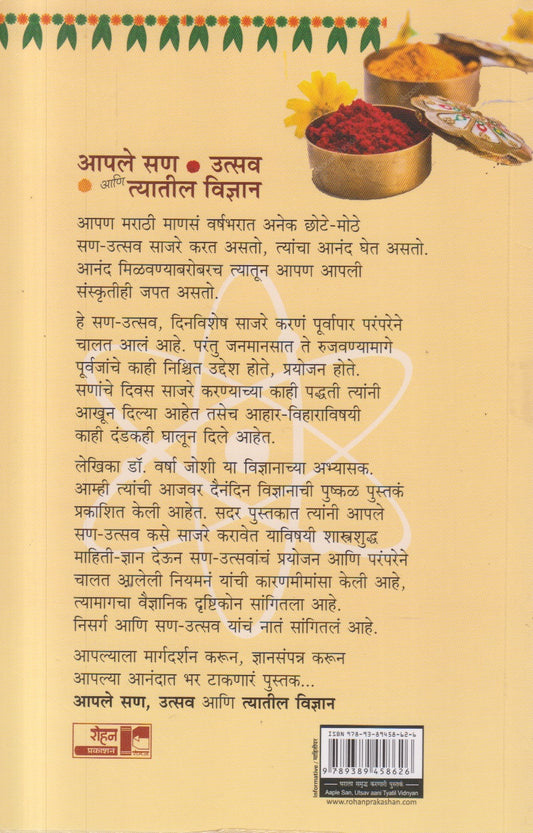 आपले सण • उत्सव
• आणि त्यातील विज्ञान
आपण मराठी माणसं वर्षभरात अनेक छोटे-मोठे
सण-उत्सव साजरे करत असतो, त्यांचा आनंद घेत असतो.
आनंद मिळवण्याबरोबरच त्यातून आपण आपली
संस्कृतीही जपत असतो.
हे सण-उत्सव, दिनविशेष साजरे करणं पूर्वापार परंपरेने
चालत आलं आहे. परंतु जनमानसात ते रुजवण्यामागे
पूर्वजांचे काही निश्चित उद्देश होते, प्रयोजन होते.
सणांचे दिवस साजरे करण्याच्या काही पद्धती त्यांनी
आखून दिल्या आहेत तसेच आहार-विहाराविषयी
काही दंडकही घालून दिले आहेत.
लेखिका डॉ. वर्षा जोशी या विज्ञानाच्या अभ्यासक.
आम्ही त्यांची आजवर दैनंदिन विज्ञानाची पुष्कळ पुस्तकं
प्रकाशित केली आहेत. सदर पुस्तकात त्यांनी आपले
सण-उत्सव कसे साजरे करावेत याविषयी शास्त्रशुद्ध
माहिती-ज्ञान देऊन सण-उत्सवांचं प्रयोजन आणि परंपरेने
चालत आलेली नियमनं यांची कारणमीमांसा केली आहे,
त्यामागचा वैज्ञानिक दृष्टिकोन सांगितला आहे.
निसर्ग आणि सण-उत्सव यांचं नातं सांगितलं आहे.
आपल्याला मार्गदर्शन करून, ज्ञानसंपन्न करून
आपल्या आनंदात भर टाकणारं पुस्तक...
आपले सण, उत्सव आणि त्यातील विज्ञान
रोहन
प्रकाशन
Informative / माहितीपर
ISBN 978-93-89458-62-6
9 789389 458626
घराला समृद्ध करणारी पुस्तकं
Aaple San, Utsav aani Tyatil Vidnyan
www.rohanprakashan.com